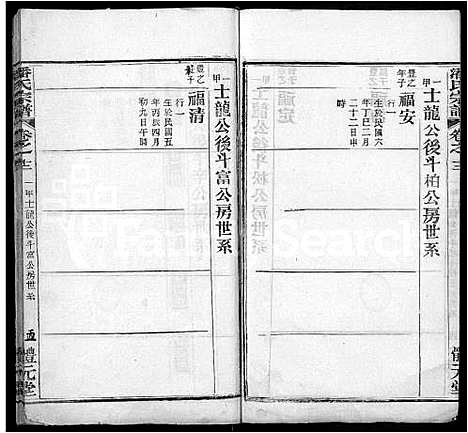 潘氏宗譜 卷之三
一甲士龍公後斗柏公房世系
豊之年子
福安
生於民國六
年丁巳二月
二十二日申
時
體元堂
一甲士龍公後斗富公房世系
豊之年子
福清
行一
生於民國五
年丙辰四月
初九日午時
潘氏宗譜 卷之三
一甲士龍公後斗富公房世系
五 體元堂
Search